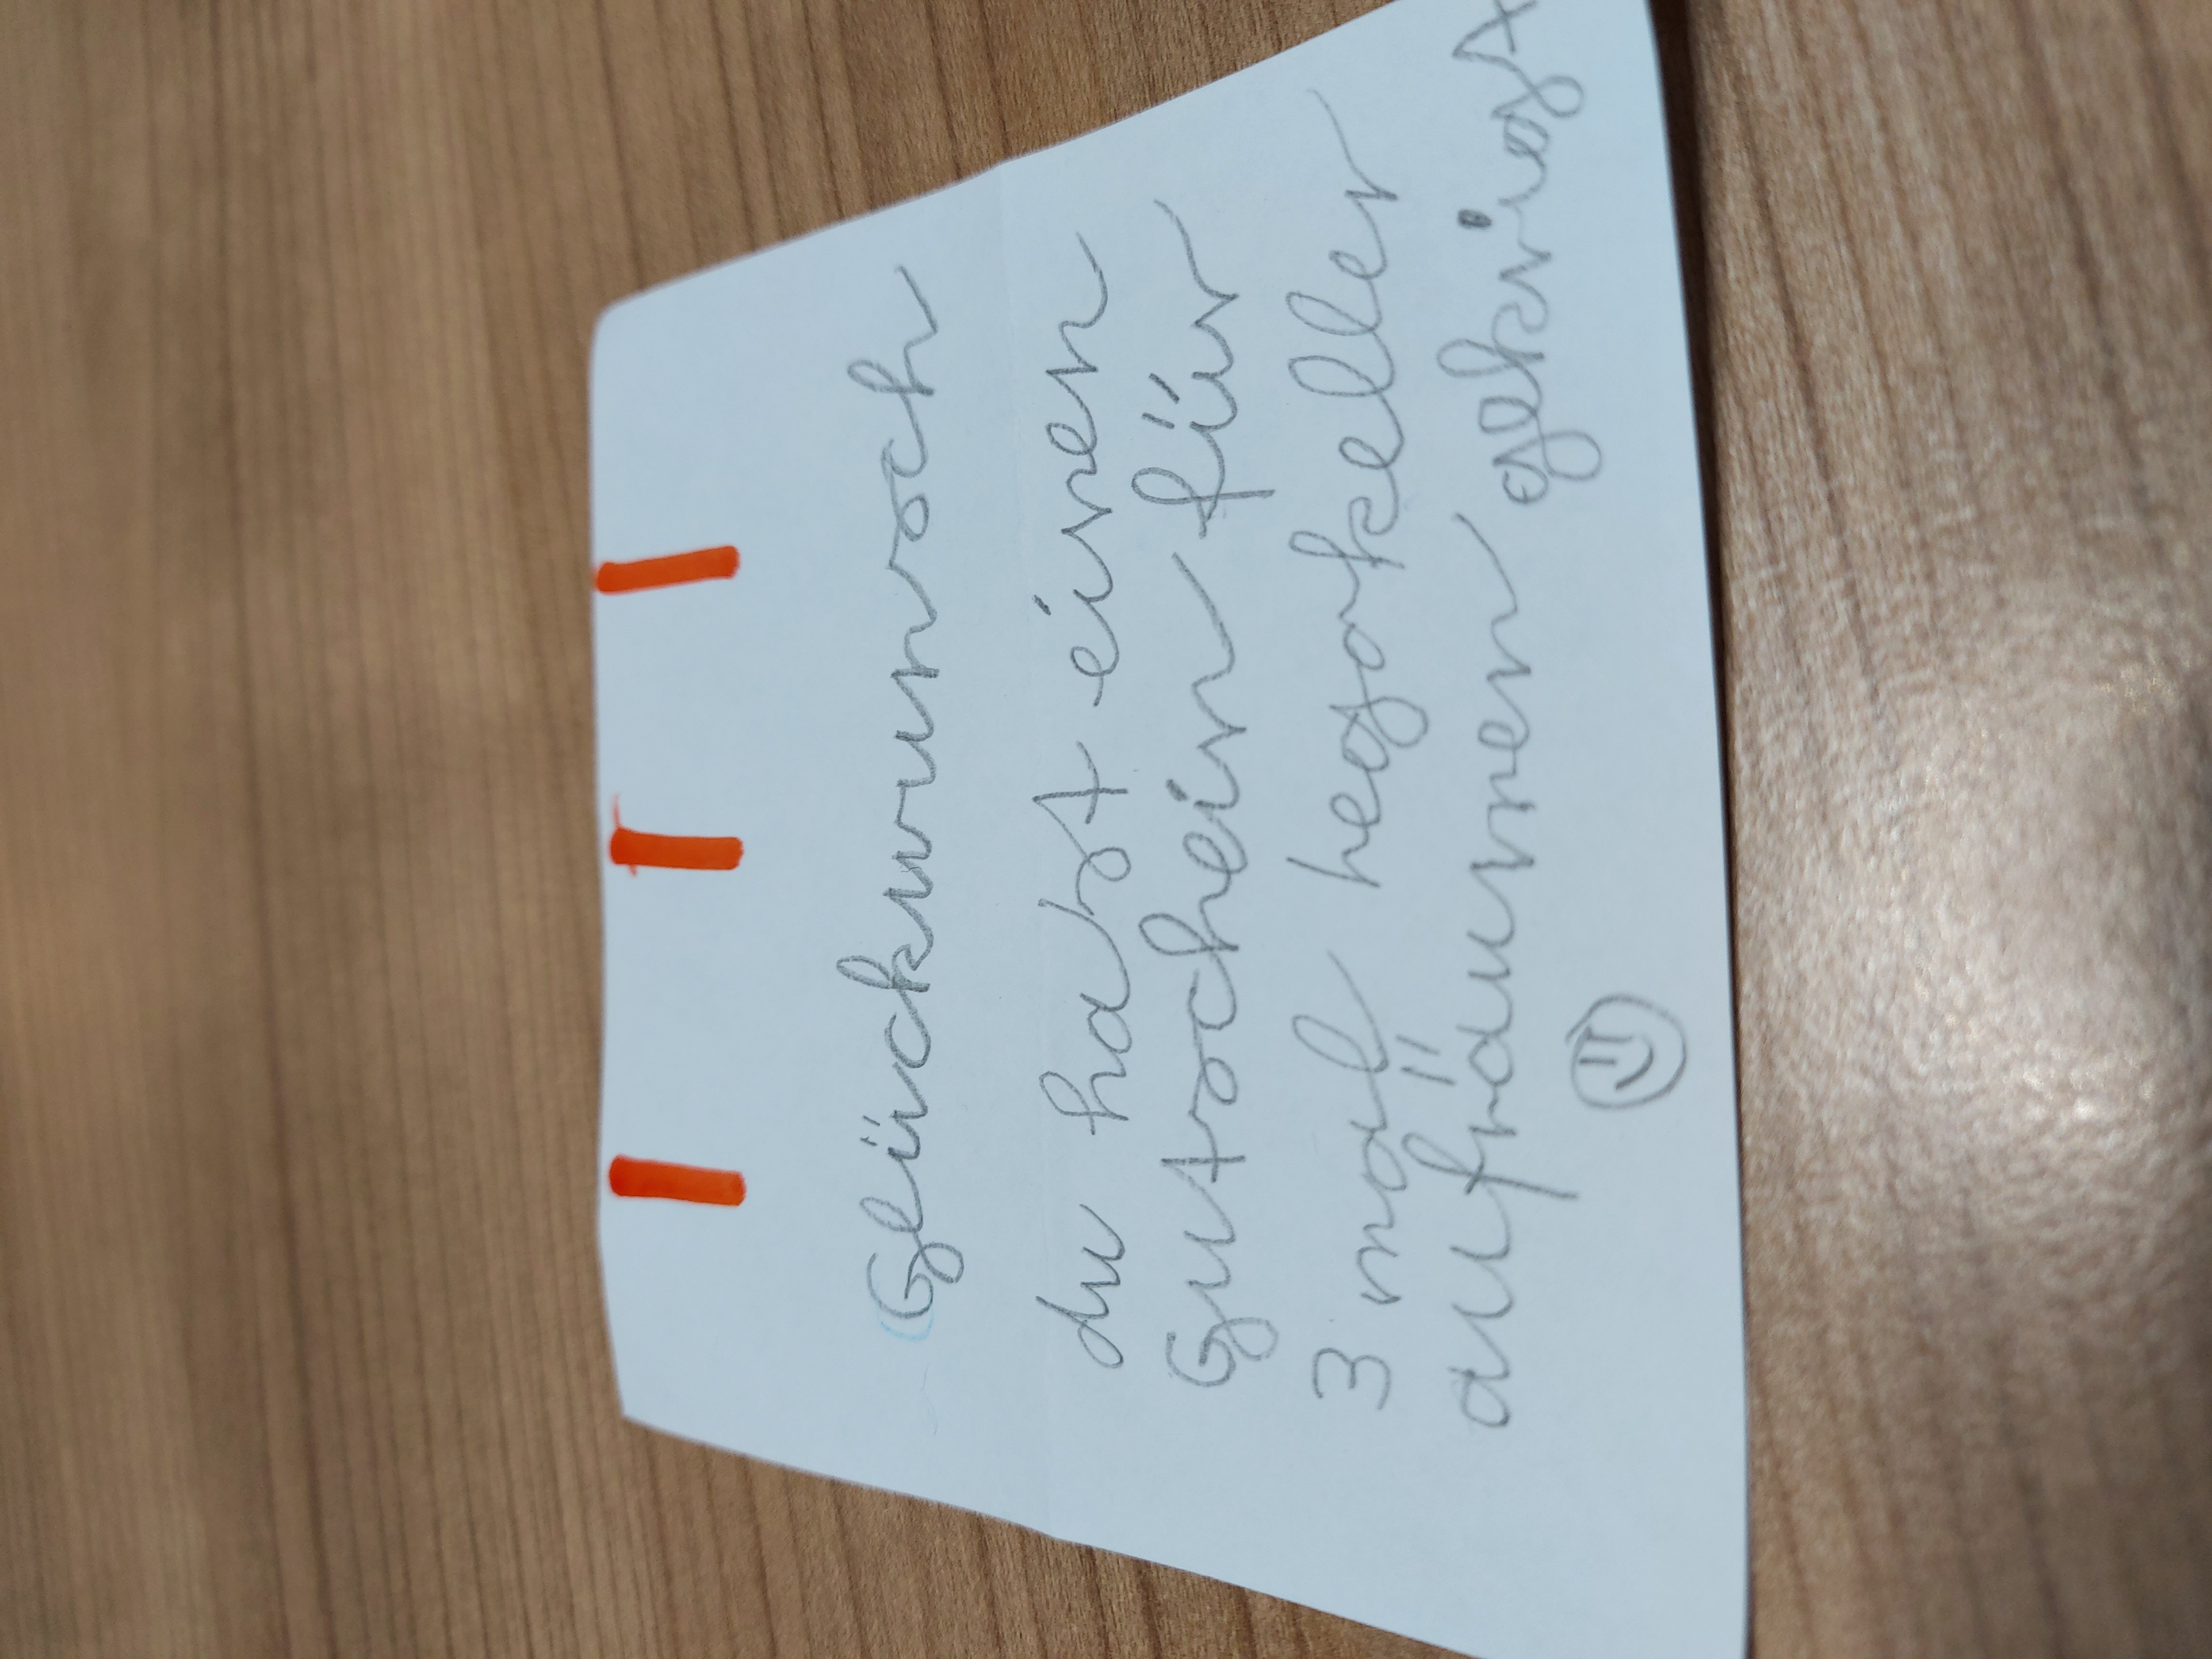 Glückwunsch
du hast einen
Gutschein für
3 mal hegorkeller
aufräumen gekriegt